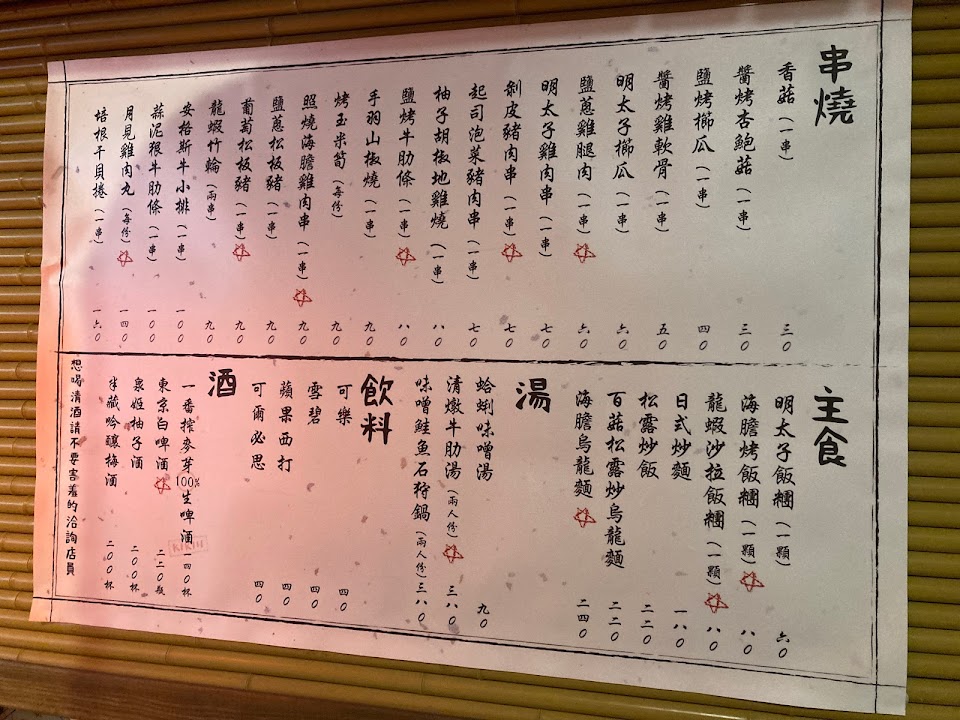 串燒
香菇(一串) 三〇
醬烤杏鮑菇(一串) 三〇
鹽烤櫛瓜(一串) 四〇
醬烤雞軟骨(一串) 五〇
明太子櫛瓜(一串) 六〇
鹽蔥雞腿肉(一串) 六〇
明太子雞肉串(一串) 七〇
剝皮豬肉串(一串) 七〇
起司泡菜豬肉串(一串) 七〇
柚子胡椒地雞燒(一串) 八〇
鹽烤牛肋條(一串) 八〇
手羽山椒燒(一串) 九〇
烤玉米筍(每份) 九〇
照燒海膽雞肉串(一串) 九〇
鹽蔥松板豬(一串) 九〇
葡萄松板豬(一串) 九〇
龍蝦竹輪(兩串) 九〇
安格斯牛小排(一串) 一〇〇
蒜泥狠牛肋條(一串) 一〇〇
月見雞肉丸(每份) 一四〇
培根干貝捲(一串) 一六〇
主食
明太子飯糰(一顆) 六〇
海膽烤飯糰(一顆) 八〇
龍蝦沙拉飯糰(一顆) 八〇
日式炒麵 一八〇
松露炒飯 二二〇
百菇松露炒烏龍麵 二二〇
海膽烏龍麵 二四〇
湯
蛤蜊味噌湯 九〇
清燉牛肋湯(兩人份) 三八〇
味噌鮭魚石狩鍋(兩人份) 三八〇
飲料
可樂 四〇
雪碧 四〇
蘋果西打 四〇
可爾必思 四〇
酒
一番搾麥芽100%生啤酒 一四〇杯
KIRIN
東京白啤酒 二二〇瓶
泉姬柚子酒 二〇〇杯
半藏吟釀梅酒 二〇〇杯
想喝清酒請不要害羞的洽詢店員